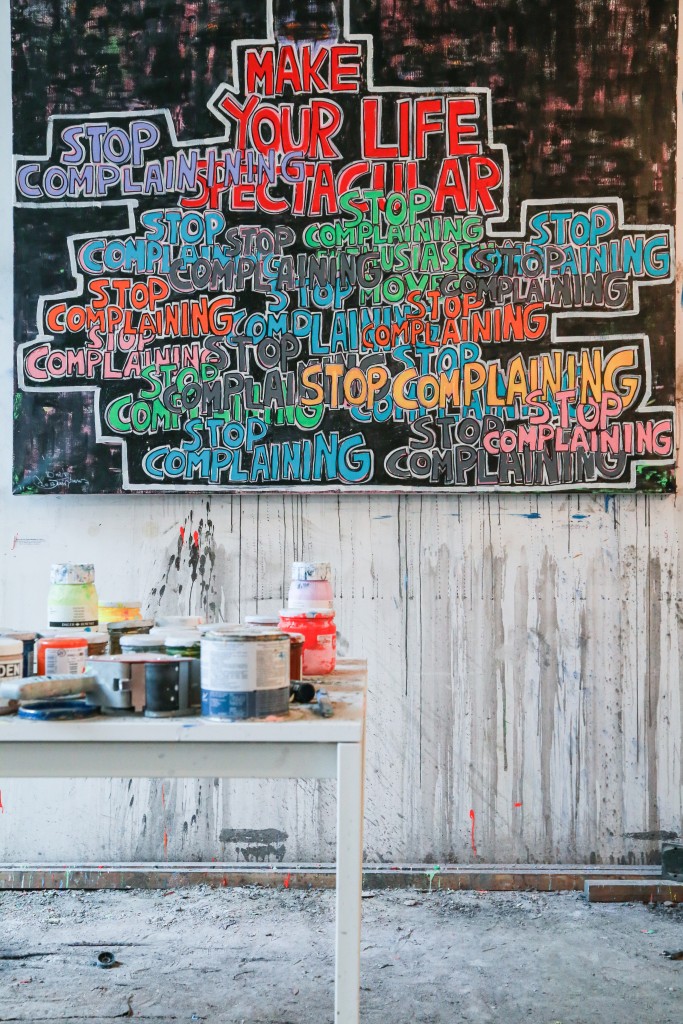 MAKE
YOUR LIFE
SPECTACULAR
STOP
COMPLAINING
STOP
COMPLAINING
STOP
COMPLAINING
STOP
COMPLAINING
STOP
COMPLAINING
STOP
COMPLAINING
MOVE
STOP
COMPLAINING
STOP
COMPLAINING
STOP
COMPLAINING
STOP
COMPLAINING
STOP
COMPLAINING
STOP
COMPLAINING
STOP COMPLAINING
STOP
COMPLAINING
STOP
COMPLAINING
STOP
COMPLAINING
STOP
COMPLAINING
DEN